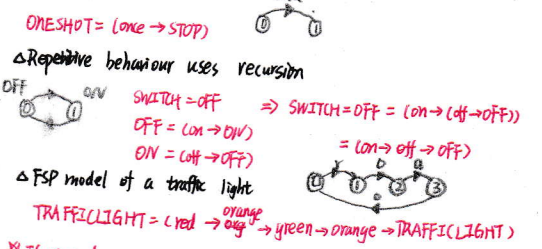 ONESHOT = (once → STOP)
0 1
△ Repetitive behaviour uses recursion
OFF ON
0 1
SWITCH = OFF ⇒ SWITCH = OFF = (on → (off → OFF))
OFF = (on → ON) = (on → off → OFF)
ON = (off → OFF)
△ FSP model of a traffic light
r o g
0 1 2 3
o
TRAFFICLIGHT = (red → orange → green → orange → TRAFFICLIGHT)